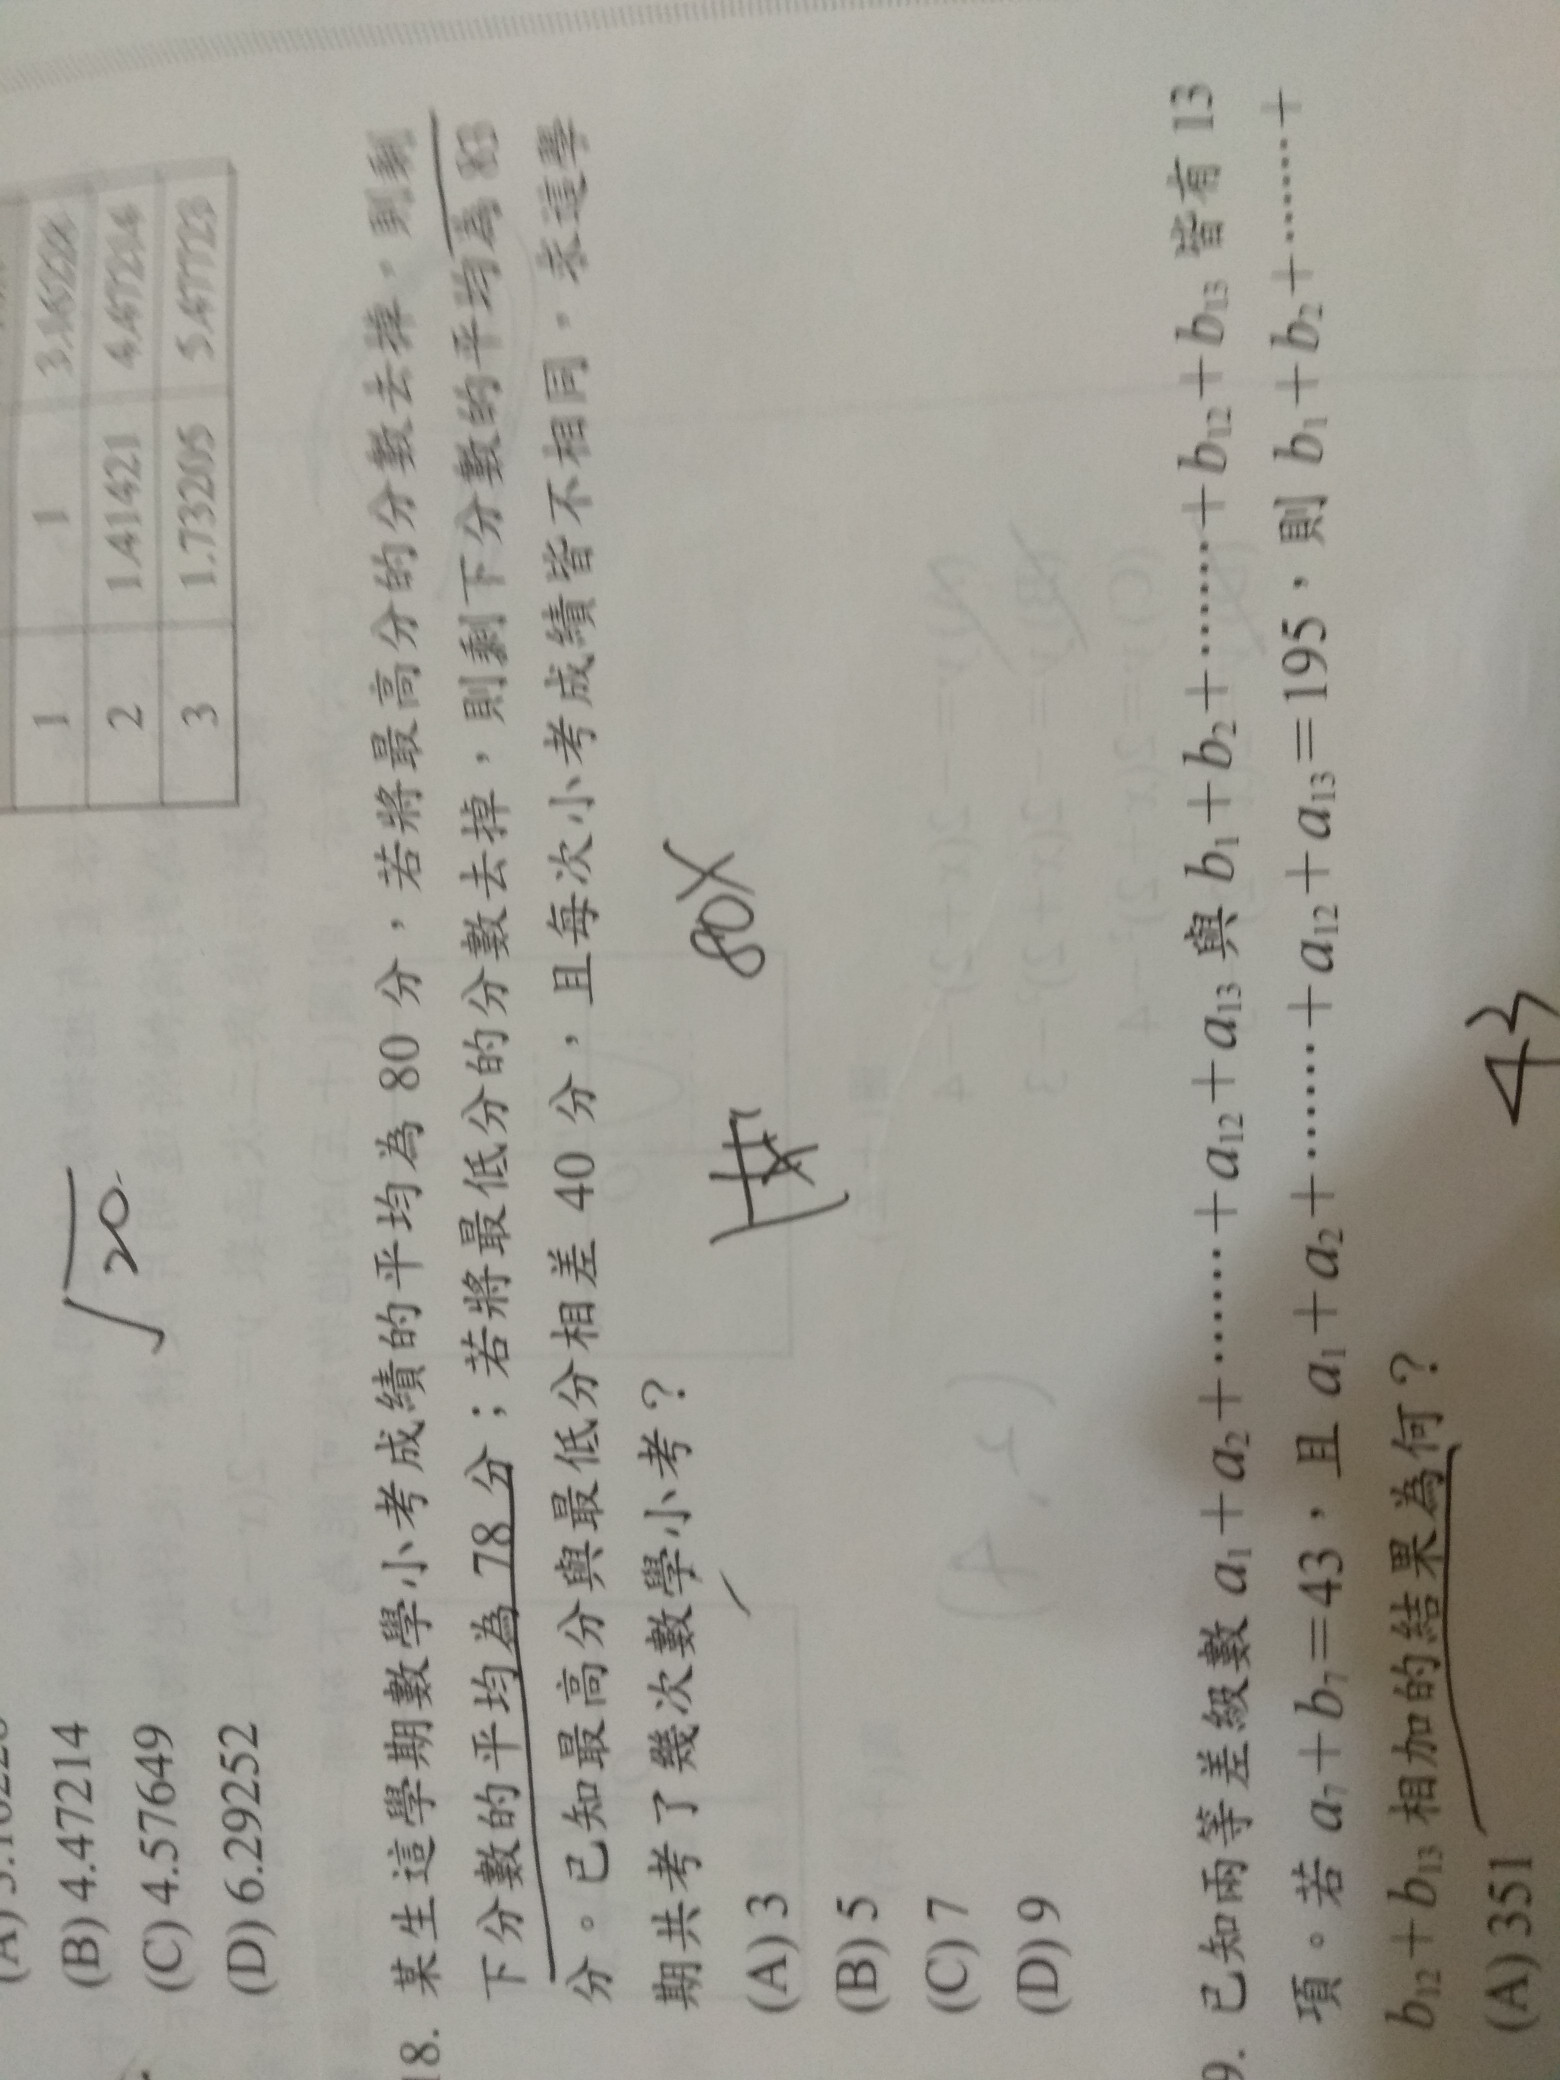 1 1 3.16228
2 1.41421 4.47214
3 1.73205 5.47723
√20
(B) 4.47214
(C) 4.57649
(D) 6.29252
18. 某生這學期數學小考成績的平均為 80 分，若將最高分的分數去掉，則剩
下分數的平均為 78 分；若將最低分的分數去掉，則剩下分數的平均為 83
分。已知最高分與最低分相差 40 分，且每次小考成績皆不相同。求這學
期共考了幾次數學小考？
80X
(A) 3
(B) 5
(C) 7
(D) 9
9. 已知兩等差級數 a₁＋a₂＋……＋a₁₂＋a₁₃ 與 b₁＋b₂＋……＋b₁₂＋b₁₃ 皆有 13
項。若 a₇＋b₇＝43，且 a₁＋a₂＋……＋a₁₂＋a₁₃＝195，則 b₁＋b₂＋……＋
b₁₂＋b₁₃ 相加的結果為何？
43
(A) 351